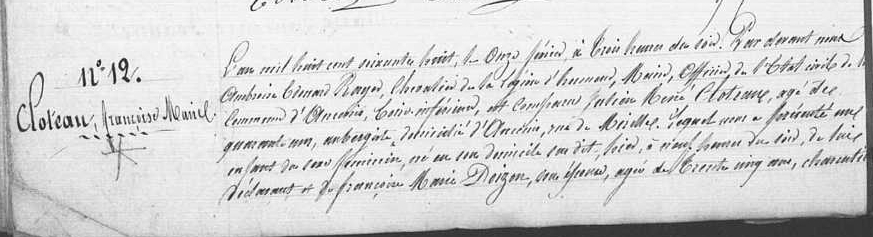 N° 12.
Cloteau, françoise Marie.
L'an mil huit cent soixante huit, le Onze février à trois heures du soir. Par devant nous
Ambroise Rayer, Chevalier de la Légion d'honneur, Maire, Officier de l'Etat civil de la
Commune d'Ancenis, Loire-inférieure, est comparu Julien René Cloteau, agé de
quarante ans, aubergiste, domicilié d'Ancenis, rue de Lequel nous a présenté une
enfant du sexe féminin, né en son domicile sus dit, hier, à heures du soir, de lui
Déclarant et de françoise Marie son épouse, agée de Trente cinq ans,